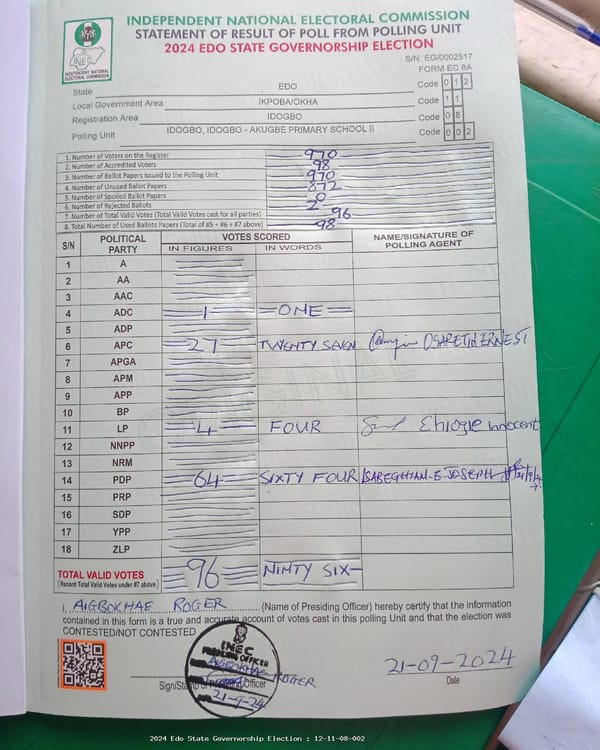 INDEPENDENT NATIONAL ELECTORAL COMMISSION
STATEMENT OF RESULT OF POLL FROM POLLING UNIT
2024 EDO STATE GOVERNORSHIP ELECTION
INEC
INDEPENDENT NATIONAL ELECTORAL COMMISSION
S/N: EG/0002517
FORM EC 8A
State EDO Code 0 1 2
Local Government Area IKPOBA/OKHA Code 1 1
Registration Area IDOGBO Code 0 8
Polling Unit IDOGBO, IDOGBO - AKUGBE PRIMARY SCHOOL II Code 0 0 2
1. Number of Voters on the Register 970
2. Number of Accredited Voters 98
3. Number of Ballot Papers Issued to the Polling Unit 970
4. Number of Unused Ballot Papers 872
5. Number of Spoiled Ballot Papers 0
6. Number of Rejected Ballots 2
7. Number of Total Valid Votes (Total Valid Votes cast for all parties) 96
8. Total Number of Used Ballots Papers (Total of #5 + #6 + #7 above) 98
S/N POLITICAL PARTY VOTES SCORED NAME/SIGNATURE OF POLLING AGENT
IN FIGURES IN WORDS
1 A
2 AA
3 AAC
4 ADC 1 ONE
5 ADP
6 APC 27 TWENTY SEVEN OSARETIN ERNEST
7 APGA
8 APM
9 APP
10 BP
11 LP 4 FOUR Ehiogie Innocent
12 NNPP
13 NRM
14 PDP 64 SIXTY FOUR JOSEPH
15 PRP
16 SDP
17 YPP
18 ZLP
TOTAL VALID VOTES 96 NINTY SIX
(Record Total Valid Votes under #7 above)
ORIGINAL
I, AIGBOKHAE ROGER (Name of Presiding Officer) hereby certify that the information
contained in this form is a true and accurate account of votes cast in this polling Unit and that the election was
CONTESTED/NOT CONTESTED
INEC
PRESIDING OFFICER
AIGBOKHAE ROGER
21-9-24
21-09-2024
Sign/Stamp of Presiding Officer Date
2024 Edo State Governorship Election : 12-11-08-002